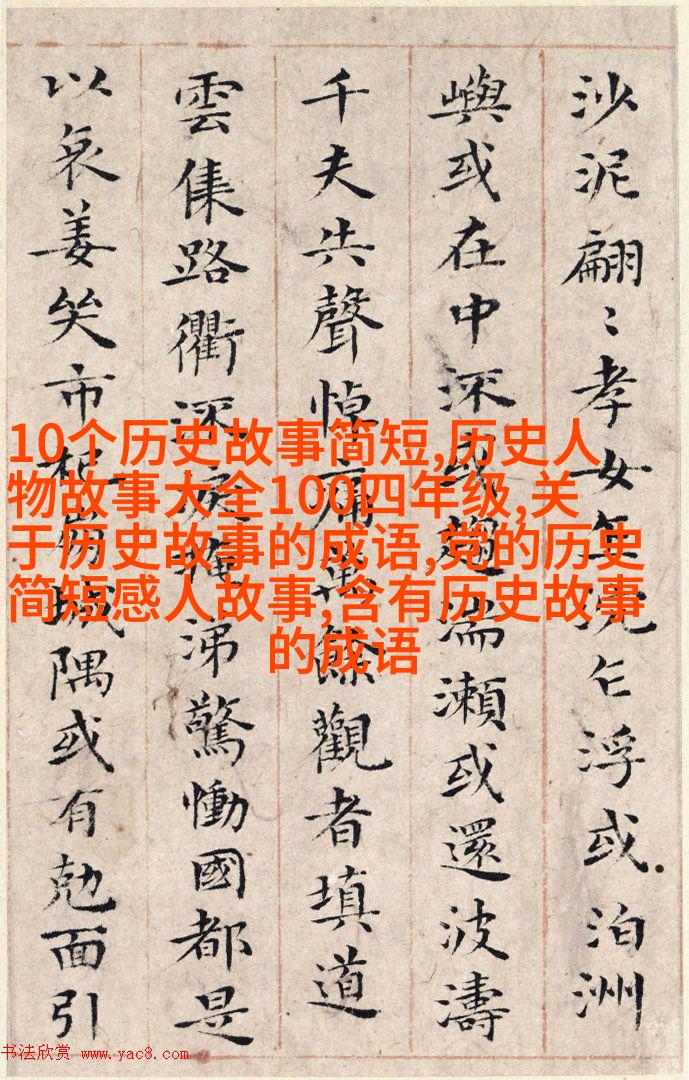 沙泥翩〻孝女乍沉乍浮或泊洲
嶼或在中流或趨湍瀨或還波濤
千夫失聲悼痛萬餘觀者填道
雲集路衢流淚掩涕驚慟國都是
以哀姜哭市杞崩城隅或有剋面引
10个历史故事简短,历史人
物故事大全100四年级,关
于历史故事的成语,党的历史
简短感人故事,含有历史故事
的成语
书法欣赏 www.yac8.com